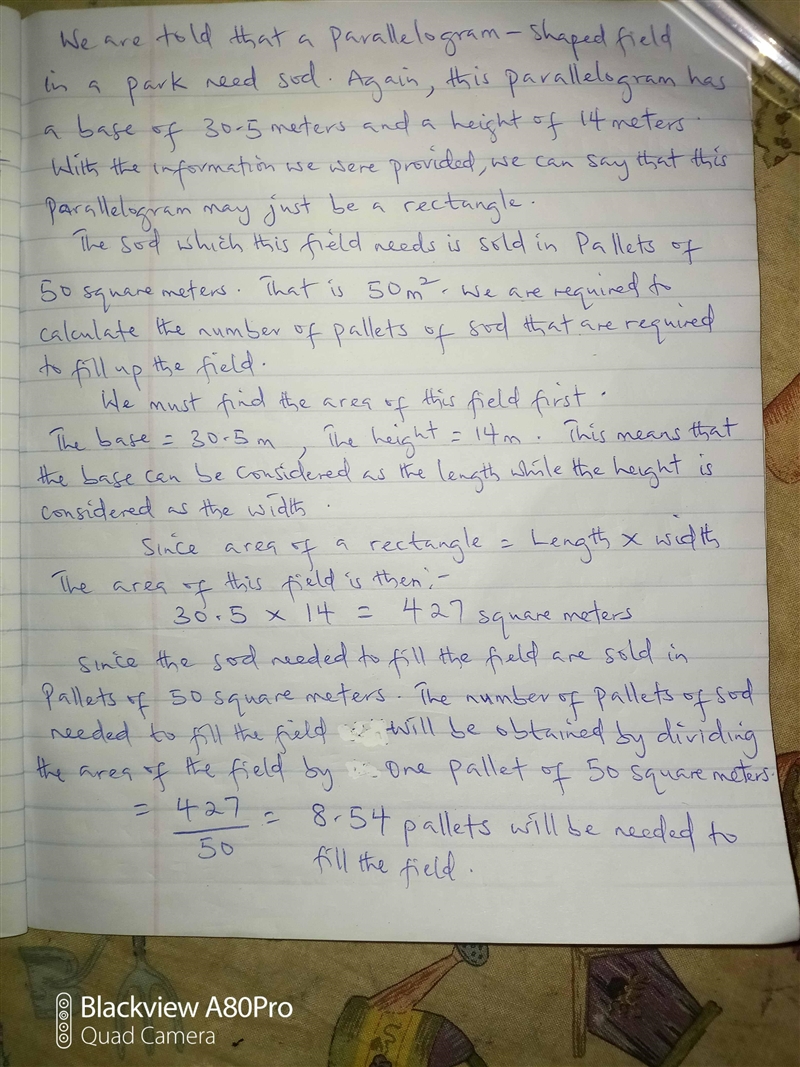 We are told that a parallelogram - shaped field
in a park need sod. Again, this parallelogram has
a base of 30.5 meters and a height of 14 meters.
With the information we were provided, we can say that this
parallelogram may just be a rectangle.
The sod which this field needs is sold in Pallets of
50 square meters. That is 50m². We are required to
calculate the number of pallets of sod that are required
to fill up the field.
We must find the area of this field first.
The base = 30.5m, The height = 14m. This means that
the base can be considered as the length while the height is
considered as the width.
Since area of a rectangle = Length × width
The area of this field is then:-
30.5 × 14 = 427 square meters
Since the sod needed to fill the field are sold in
Pallets of 50 square meters. The number of pallets of sod
needed to fill the field will be obtained by dividing
the area of the field by One pallet of 50 square meters.
= 427/50 = 8.54 pallets will be needed to
fill the field.
Blackview A80Pro
Quad Camera